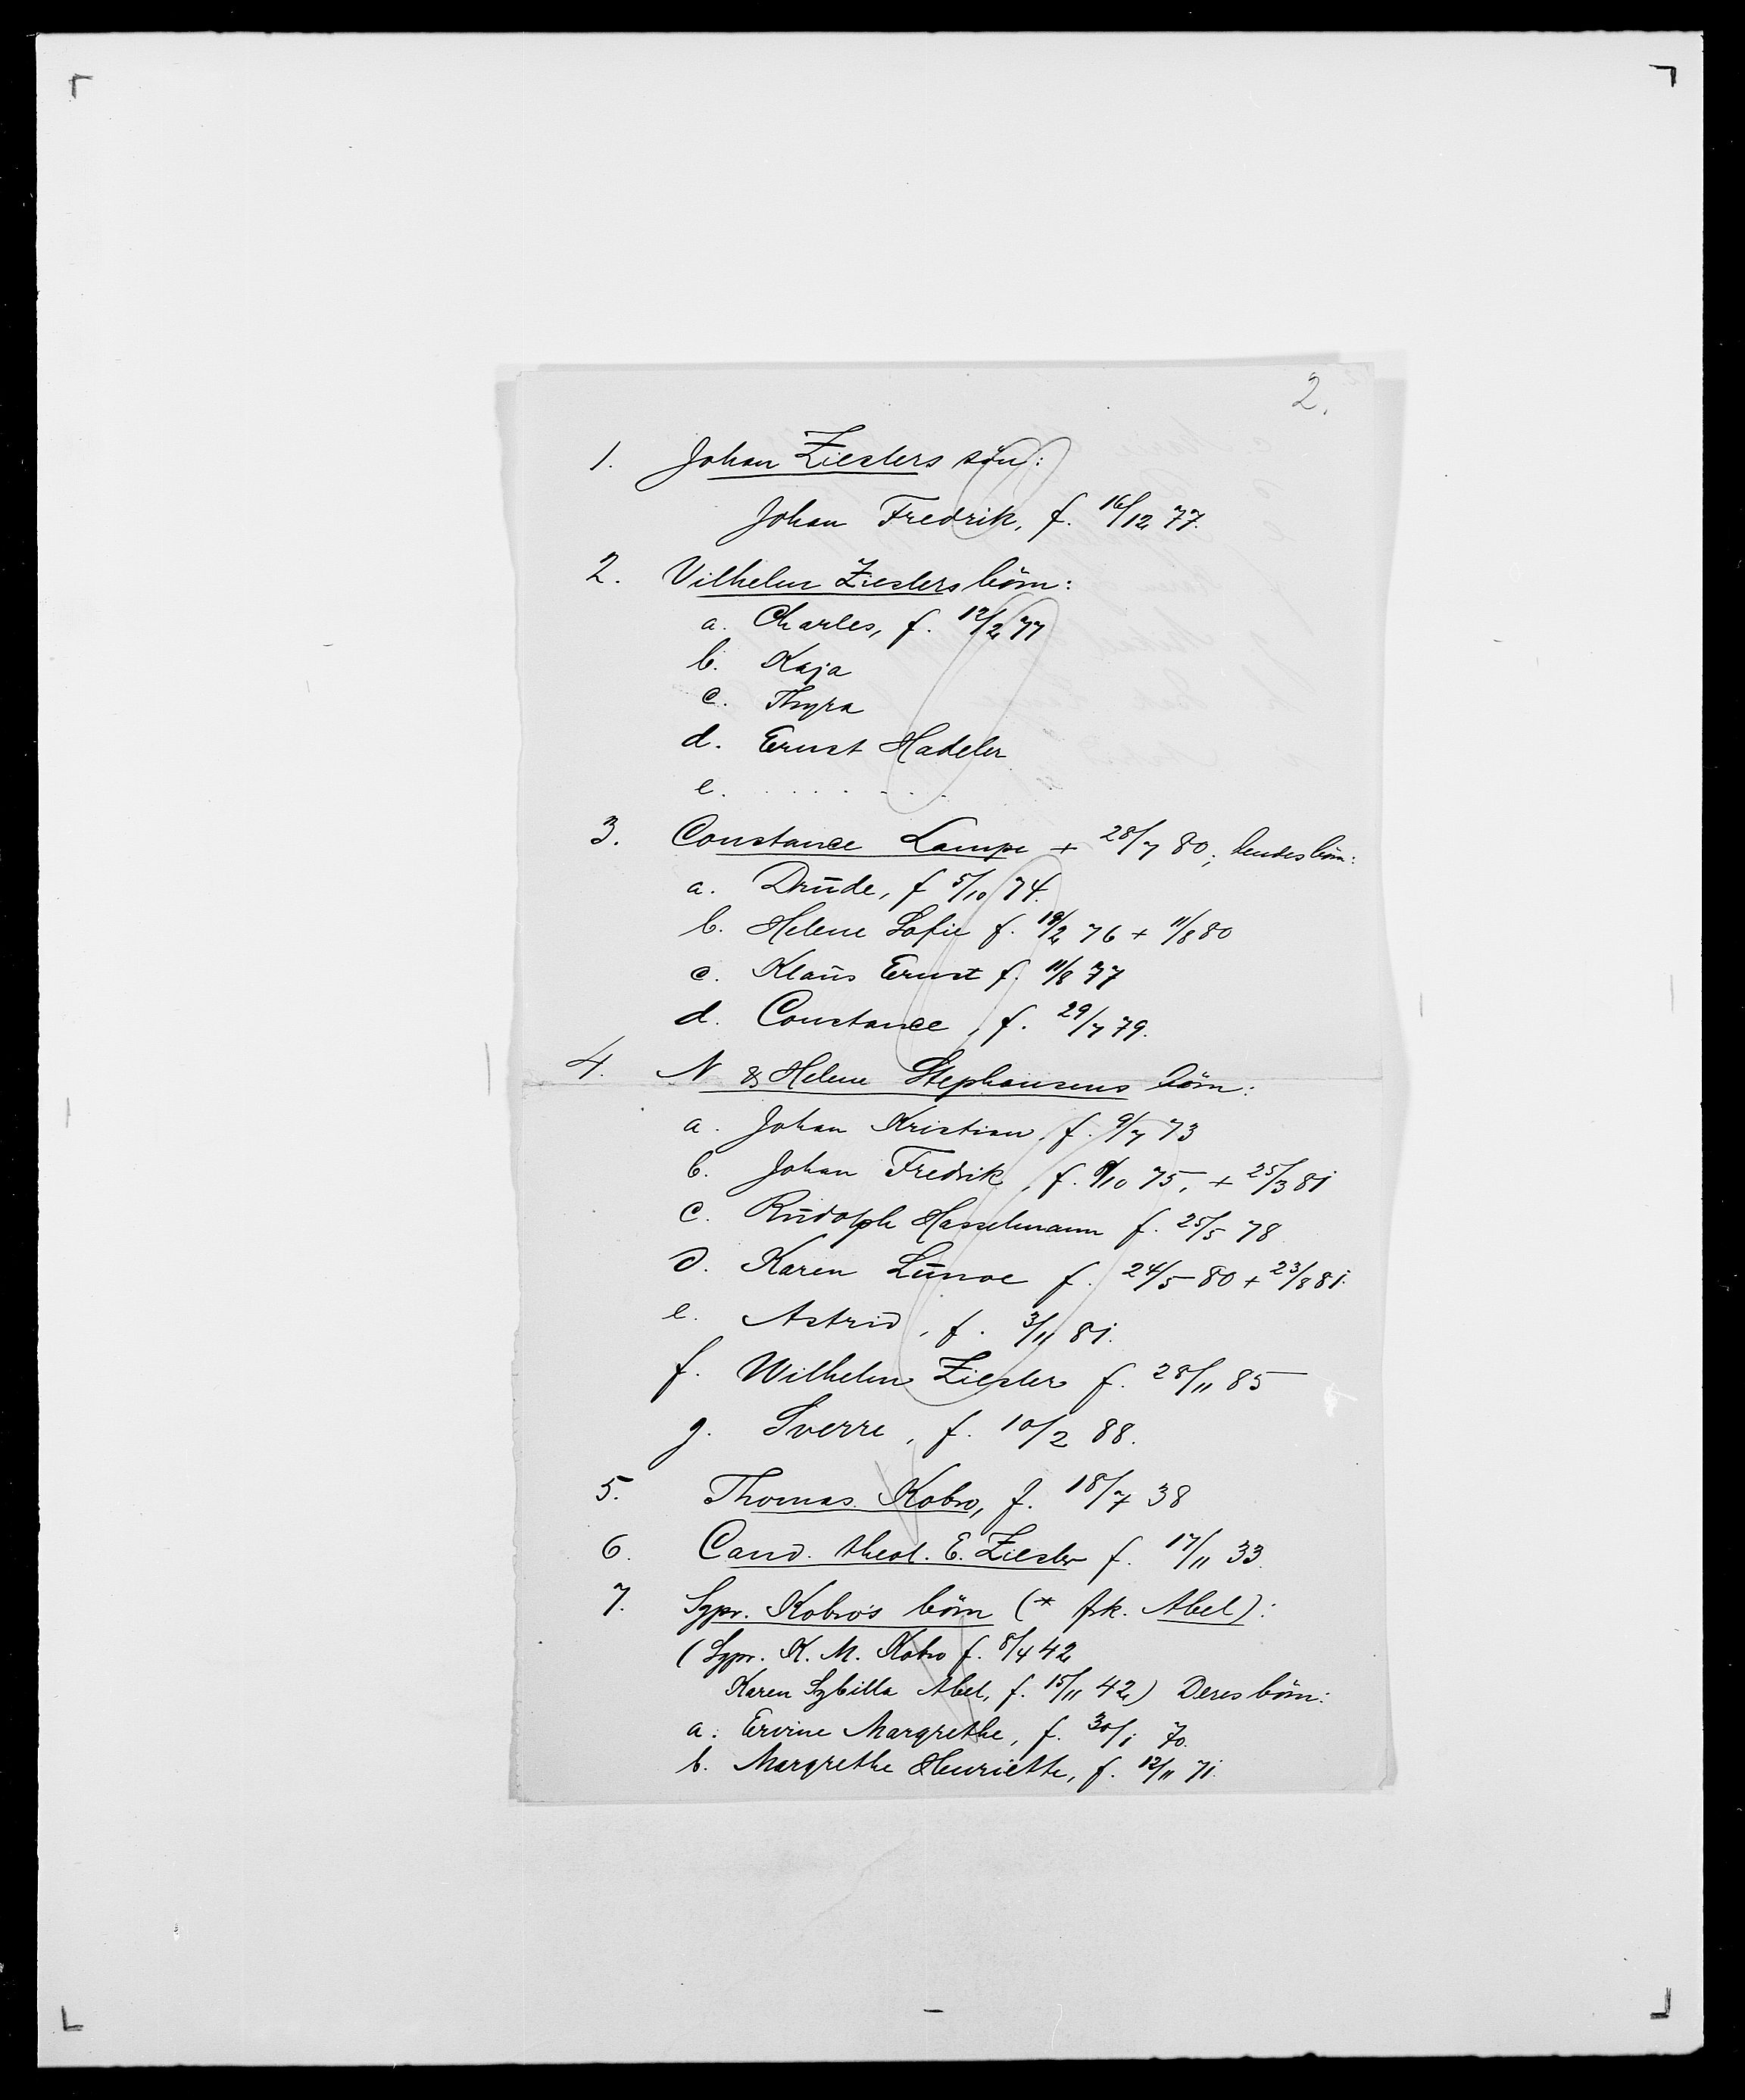 2.
1. Johan Zieslers søn:
Johan Fredrik, f. 16/12 77.
2. Vilhelm Zieslers börn:
a. Charles, f. 12/2 77
b. Kaja
c. Thyra
d. Ernst Hadeler
e. . . . . . . .
3. Constance Lampe + 28/7 80; hendes börn:
a. Drŭde, f 5/10 74.
b. Helene Sofie f. 19/2 76 + 11/8 80
c. Klaŭs Ernst f. 11/8 77
d. Constance, f. 29/7 79.
4. N & Helene Stephansens börn:
a. Johan Kristian, f. 9/7 73
b. Johan Fredrik, f. 8/10 75, + 25/3 81
c. Rŭdolph Hasselmann f. 25/5 78
d. Karen Lŭnoe f. 24/5 80 + 23/8 81.
e. Astrid, f. 3/11 81.
f. Wilhelm Ziesler f. 28/11 85
g. Sverre, f. 10/2 88.
5. Thomas Kobro, f. 18/7 38
6. Cand. theol. E. Ziesler f. 17/11 33.
7. Sgpr. Kobro's börn (* frk. Abel):
(Sgpr. K. M. Kobro f. 8/4 42
Karen Sybilla Abel, f. 15/11 42) Deres börn:
a. Ervine Margrethe, f. 30/1 70.
b. Margrethe Henriette, f. 12/11 71.